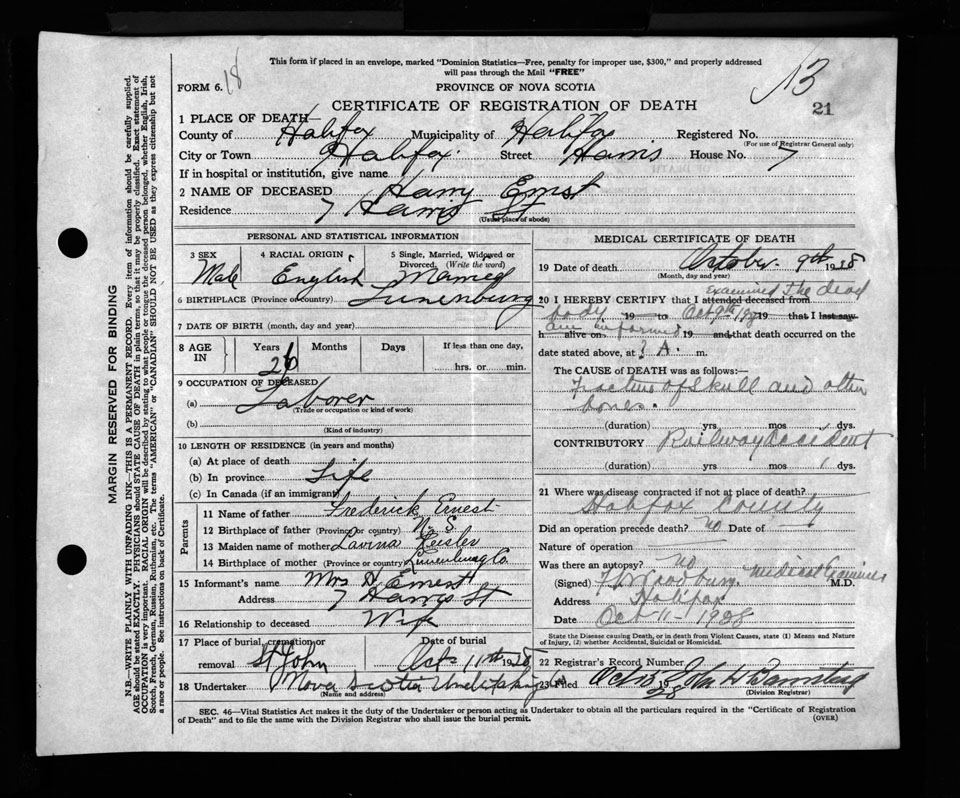 This form if placed in an envelope, marked "Dominion Statistics—Free, penalty for improper use, $300," and properly addressed
will pass through the Mail "FREE"
FORM 6.
18
PROVINCE OF NOVA SCOTIA
13
21
CERTIFICATE OF REGISTRATION OF DEATH
1 PLACE OF DEATH—
County of Halifax Municipality of Halifax Registered No.
(For use of Registrar General only)
City or Town Halifax. Street Harris House No. 7
If in hospital or institution, give name
2 NAME OF DECEASED Harry Ernst
Residence 7 Harris St
(Usual place of abode)
PERSONAL AND STATISTICAL INFORMATION
3 SEX Male
4 RACIAL ORIGIN English
5 Single, Married, Widowed or Divorced, (Write the word) Married
6 BIRTHPLACE (Province or country) Lunenburg
7 DATE OF BIRTH (month, day and year)
8 AGE IN Years 26 Months Days If less than one day, hrs. or min.
9 OCCUPATION OF DECEASED
(a) Laborer
(Trade or occupation or kind of work)
(b)
(Kind of industry)
10 LENGTH OF RESIDENCE (in years and months)
(a) At place of death
(b) In province Life
(c) In Canada (if an immigrant)
Parents
11 Name of father Frederick Ernest
12 Birthplace of father (Province or country) N. S.
13 Maiden name of mother Lavina Keisler
14 Birthplace of mother (Province or country) Lunenburg Co.
15 Informant's name Mrs H Ernest
Address 7 Harris St
16 Relationship to deceased Wife
17 Place of burial, cremation or removal St John Date of burial Oct 11th 1928
18 Undertaker Nova Scotia Undertaking
(Name and address)
MEDICAL CERTIFICATE OF DEATH
19 Date of death October 9th 1928
(Month, day and year)
20 I HEREBY CERTIFY that I attended deceased from examined the dead
body 19 to Oct 9th 1928 19 that I last saw
h alive on am informed 19 and that death occurred on the
date stated above, at ? A. m.
The CAUSE of DEATH was as follows:—
Fracture of Skull and other
bones.
(duration) yrs mos dys.
CONTRIBUTORY Railway Accident
(duration) yrs mos 1 dys.
21 Where was disease contracted if not at place of death?
Halifax County
Did an operation precede death? no Date of
Nature of operation
Was there an autopsy? No
(Signed) Woodbury Medical Examiner M.D.
Address Halifax
Date Oct 11- 1928
State the Disease causing Death, or in death from Violent Causes, state (1) Means and Nature
of Injury, (2) whether Accidental, Suicidal or Homicidal. (See reverse side)
22 Registrar's Record Number
23 Filed Oct 13 1928 John
(Division Registrar)
SEC. 46—Vital Statistics Act makes it the duty of the Undertaker or person acting as Undertaker to obtain all the particulars required in the "Certificate of Registration
of Death" and to file the same with the Division Registrar who shall issue the burial permit.
(OVER)
MARGIN RESERVED FOR BINDING
N.B.—WRITE PLAINLY WITH UNFADING INK—THIS IS A PERMANENT RECORD. Every item of information should be carefully supplied.
AGE should be stated EXACTLY. PHYSICIANS should STATE CAUSE OF DEATH in plain terms, so that it may be properly classified. Exact statement of
OCCUPATION is very important. RACIAL ORIGIN will be described by stating to what people or tongue the deceased person belonged, whether English, Irish,
Scotch, French, German, Russian, Ruthenian, etc. The terms "AMERICAN" or "CANADIAN" SHOULD NOT BE USED as they express citizenship but not
a race or people. See instructions on back of Certificate.